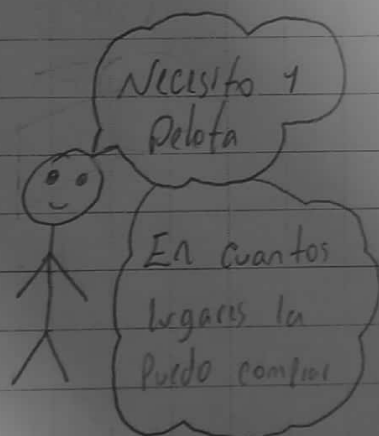 Necesito 1
Pelota
En cuantos
lugares la
Puedo comprar